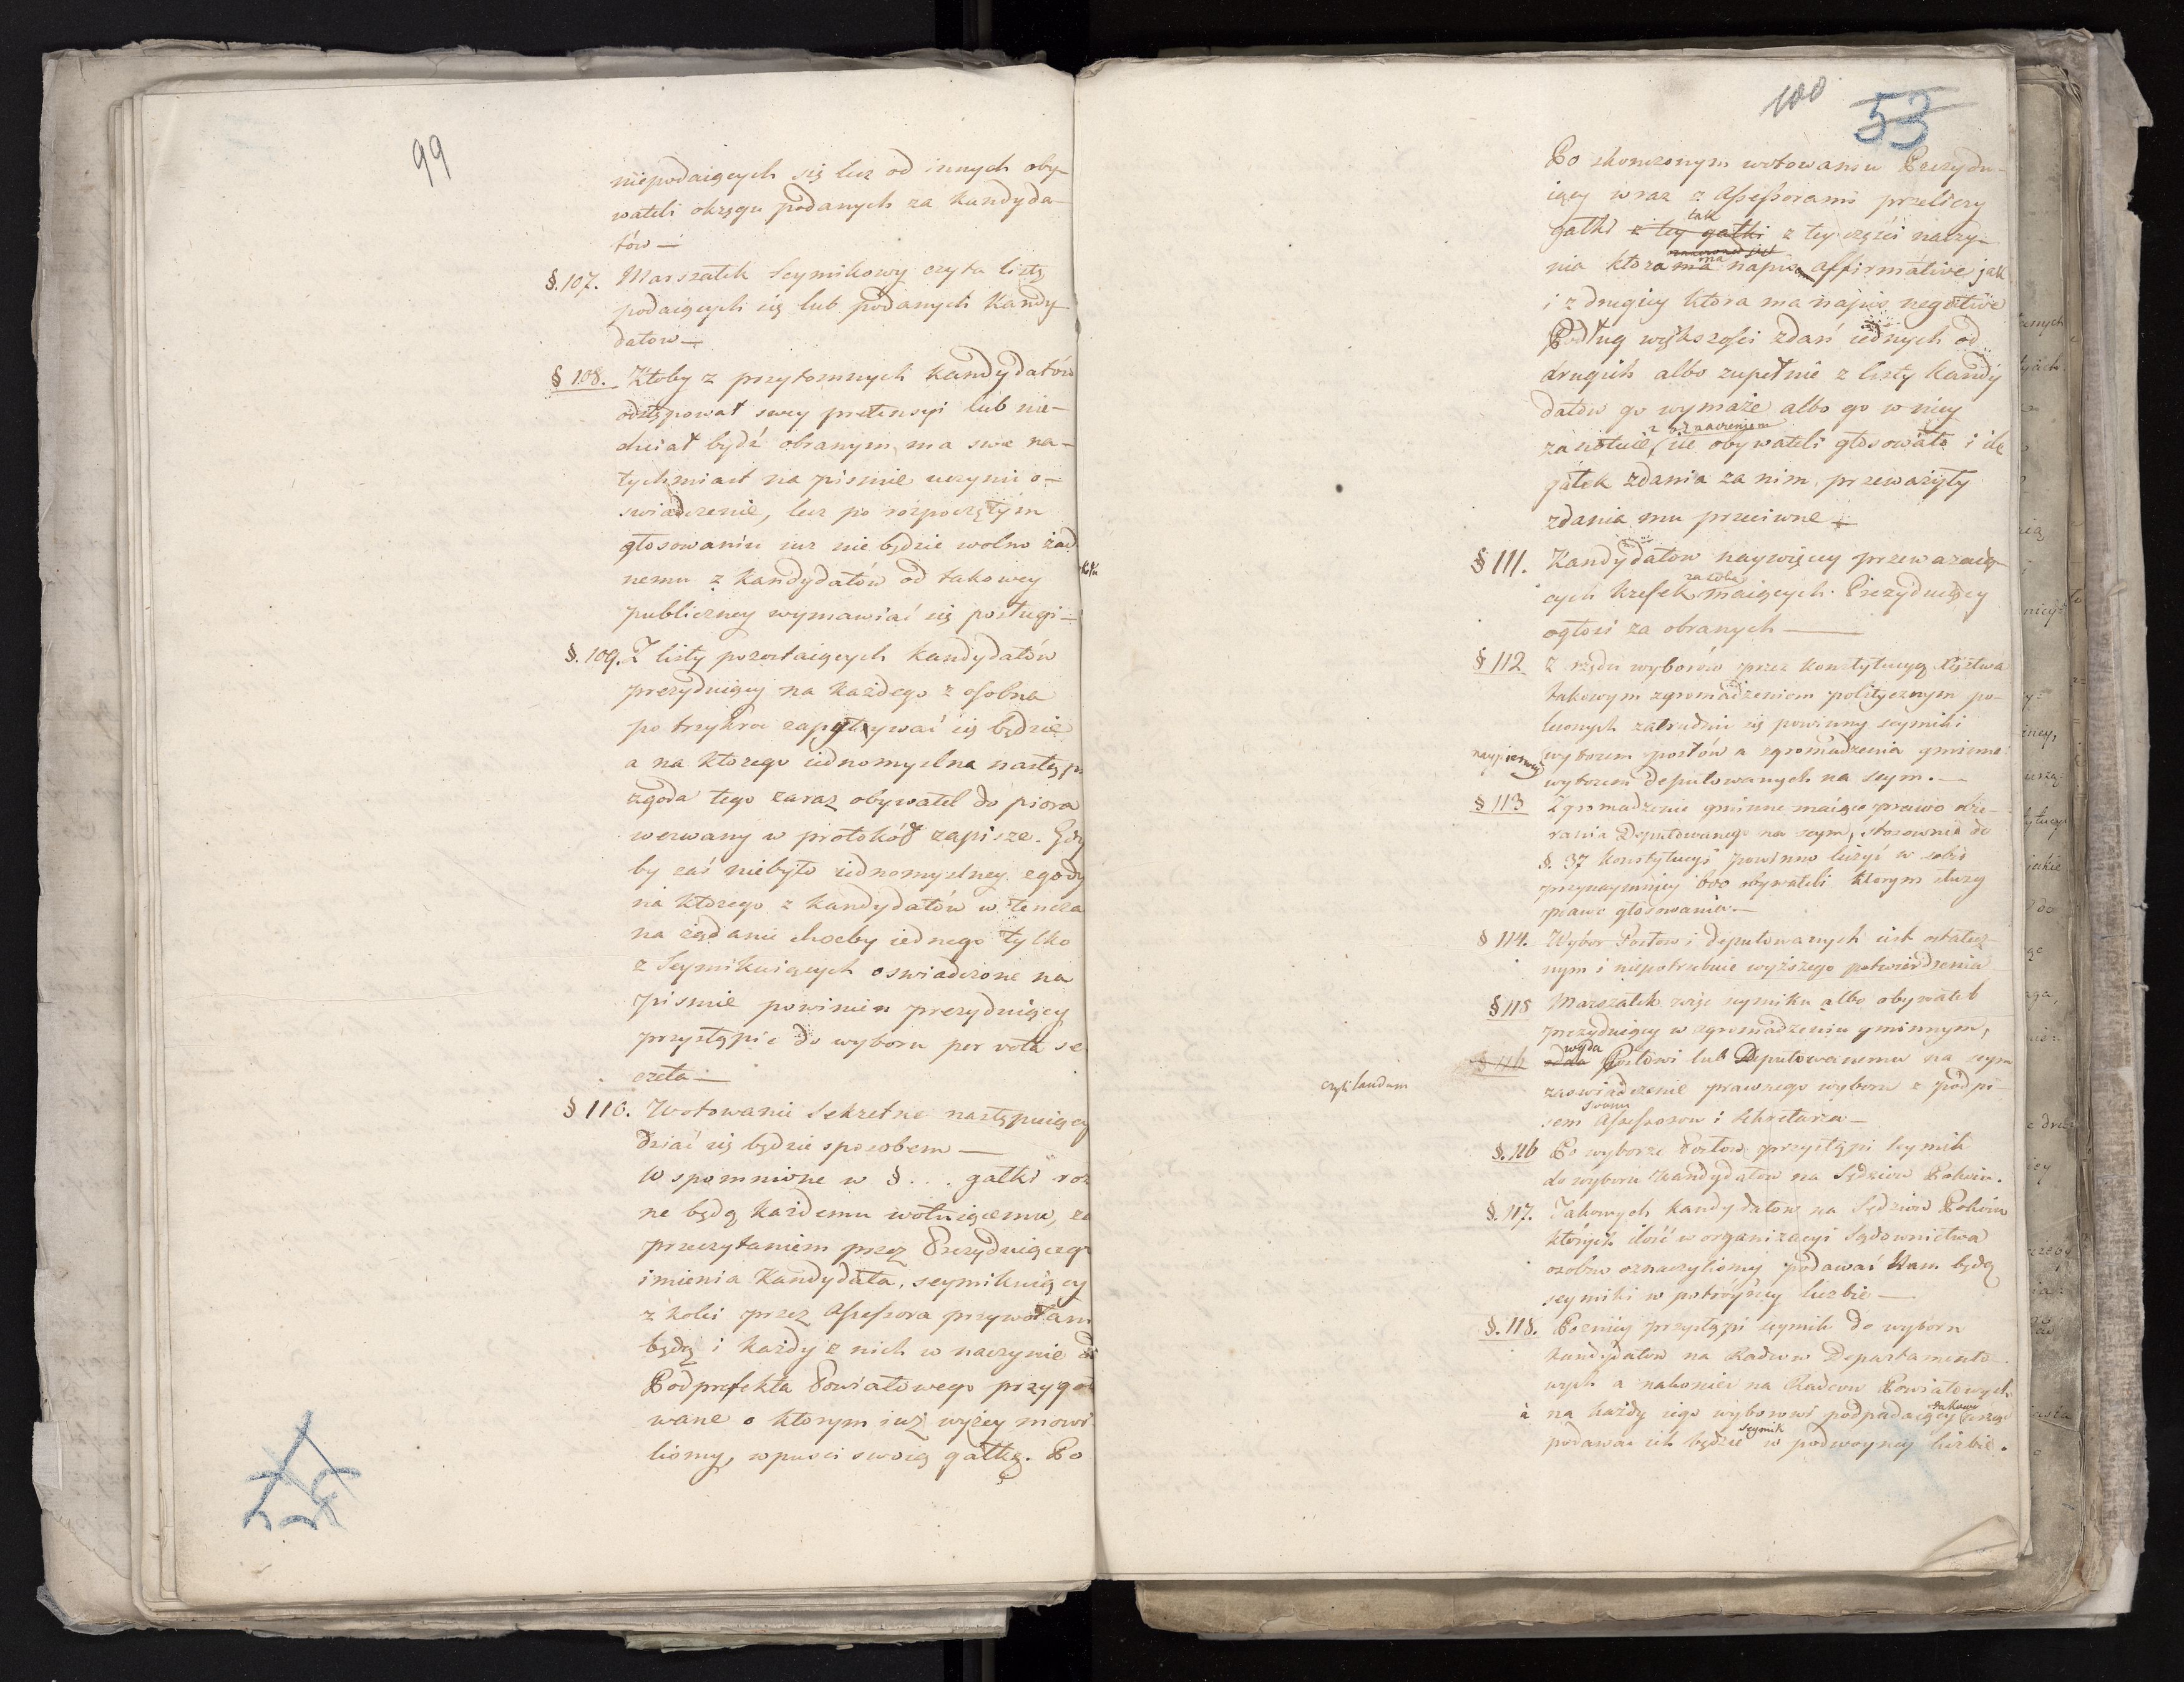 99
niepodaiących się lecz od innych oby-
wateli okręgu podanych za kandyda-
tów —
§. 107. Marszałek Seymikowy czyta listę
podaiących się lub podanych kandy-
datow —
§ 108. Ktoby z przytomnych kandydatów
odstępował swey pretensyi lub nie-
chciał bydź obranym, ma swe na-
tychmiast na pismie uczynić o-
swiadczenie, lecz po rozpoczętym
głosowaniu iuz nie będzie wolno żad
nemu z kandydatów od takowey
publiczney wymawiać się posługi —
§. 109. Z listy pozostaiących kandydatów
prezyduiący na każdego z osobna
po trzykroć zapytywać się będzie
a na ktorego iednomyslna nastąp
zgoda tego zaraz obywatel do piora
wezwany w protokół zapisze. Gdy
by zaś niebyło iednomyslney zgody
na ktorego z kandydatów w tencza
na żądanie choćby iednego tylko
z Seymikuiących oswiadczone na
pismie powinien prezyduiący
przystąpić do wyboru per vota se
creta —
§ 110. Wotowanie sekretne następuiący
dziać się będzie sposobem —
Wspomnione w § . . . gałki roz
ne będą każdemu wotuiącemu, za
przeczytaniem przez Prezyduiącego
imienia Kandydata, seymikuiący
z kolei przez Assessora przywołani
będą i każdy z nich w naczynie od
Podprefekta Powiatowego przygoto
wane o ktorym iuż wyżey mowi
lismy, wpusci swoią gałkę. Po
100
53
Po skonczonym wotowaniu Prezydu-
iący wraz z Assessorami przeliczy
tak
gałki z tey gałki z tey części naczy-
nia ktora ma napis affirmative jak
i z drugiey ktora ma napis negative
Podług większości zdań iednych od
drugich albo zupełnie z listy kandy
datów go wymaże albo go w niey
z oznaczeniem
zanotuie, ile obywateli głosowało i ile
gałek zdania za nim przeważyły
zdania mu przeciwne —
§ 111. Kandydatow naywięcey przewazaią-
za sobą
cych kresek maiących Prezyduiący
ogłosi za obranych —
§ 112 Z rzędu wyborów przez konstytucyą Xięstwa
takowym zgromadzeniom politycznym po-
leconych zatrudnić się powinny seymiki
naypierwey wyborem posłów a zgromadzenia gminne
wyborem deputowanych na seym. —
§ 113 Zgromadzenie gminne maiące prawo obie-
rania Deputowanego na seym, stosownie do
§. 37 konstytucyi powinno liczyć w sobie
przynaymniey 600 obywateli ktorym służy
prawo głosowania —
§ 114. Wybor Posłow i deputowanych iest ostatecz-
nym i niepotrzebuie wyższego potwierdzenia
§ 115 Marszałek seymiku albo obywatel
prezyduiący w zgromadzeniu gminnym,
wyda
§ 116 Posłowi lub Deputowanemu na seym
czyli laudum
zaswiadczenie prawnego wyboru z podpi-
swoim
sem Assessorow i Sekretarza —
§. 116 Po wyborze Posłow przystąpi seymik
do wyboru kandydatow na Sędziow Pokoiu.
§. 117. Takowych kandydatow na Sędziow Pokoiu
których ilość w organizacyi Sądownictwa
osobno oznaczylismy podawać Nam będą
seymiki w potróyney liczbie —
§. 118. Pozniey przystąpi seymik do wyboru
kandydatow na Radcow Departamento-
wych a nakoniec na Radcow Powiatowych
à na każdy iego wyborowi podpadaiący urząd
seymik
podawać ich będzie w podwoyney liczbie.